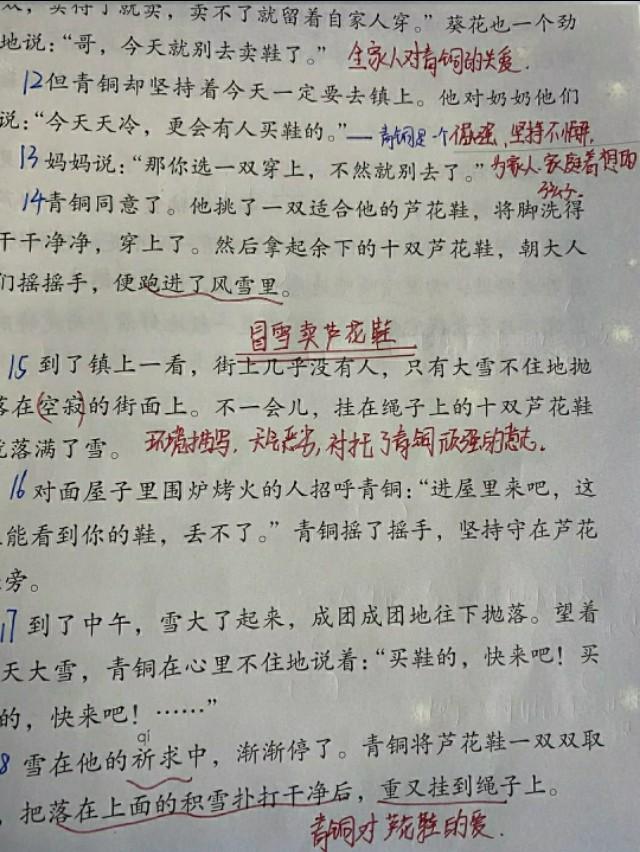 买得了就买，卖不了就留着自家人穿。”葵花也一个劲
地说：“哥，今天就别去卖鞋了。” 全家人对青铜的关爱.
12但青铜却坚持着今天一定要去镇上。他对奶奶他们
说：“今天天冷，更会有人买鞋的。”— 青铜是一个倔强，坚持不懈，
13妈妈说：“那你选一双穿上，不然就别去了。” 为家人.家庭着想的
孩子.
14青铜同意了。他挑了一双适合他的芦花鞋，将脚洗得
干干净净，穿上了。然后拿起余下的十双芦花鞋，朝大人
们摇摇手，便跑进了风雪里。
冒雪卖芦花鞋
15到了镇上一看，街上几乎没有人，只有大雪不住地抛
落在(空寂)的街面上。不一会儿，挂在绳子上的十双芦花鞋
就落满了雪。 环境描写，天气恶劣，衬托了青铜顽强的意志.
16对面屋子里围炉烤火的人招呼青铜：“进屋里来吧，这
能看到你的鞋，丢不了。”青铜摇了摇手，坚持守在芦花
旁。
17到了中午，雪大了起来，成团成团地往下抛落。望着
天大雪，青铜在心里不住地说着：“买鞋的，快来吧！买
的，快来吧！……”
qí
8雪在他的祈求中，渐渐停了。青铜将芦花鞋一双双取
，把落在上面的积雪扑打干净后，重又挂到绳子上。
青铜对芦花鞋的爱.